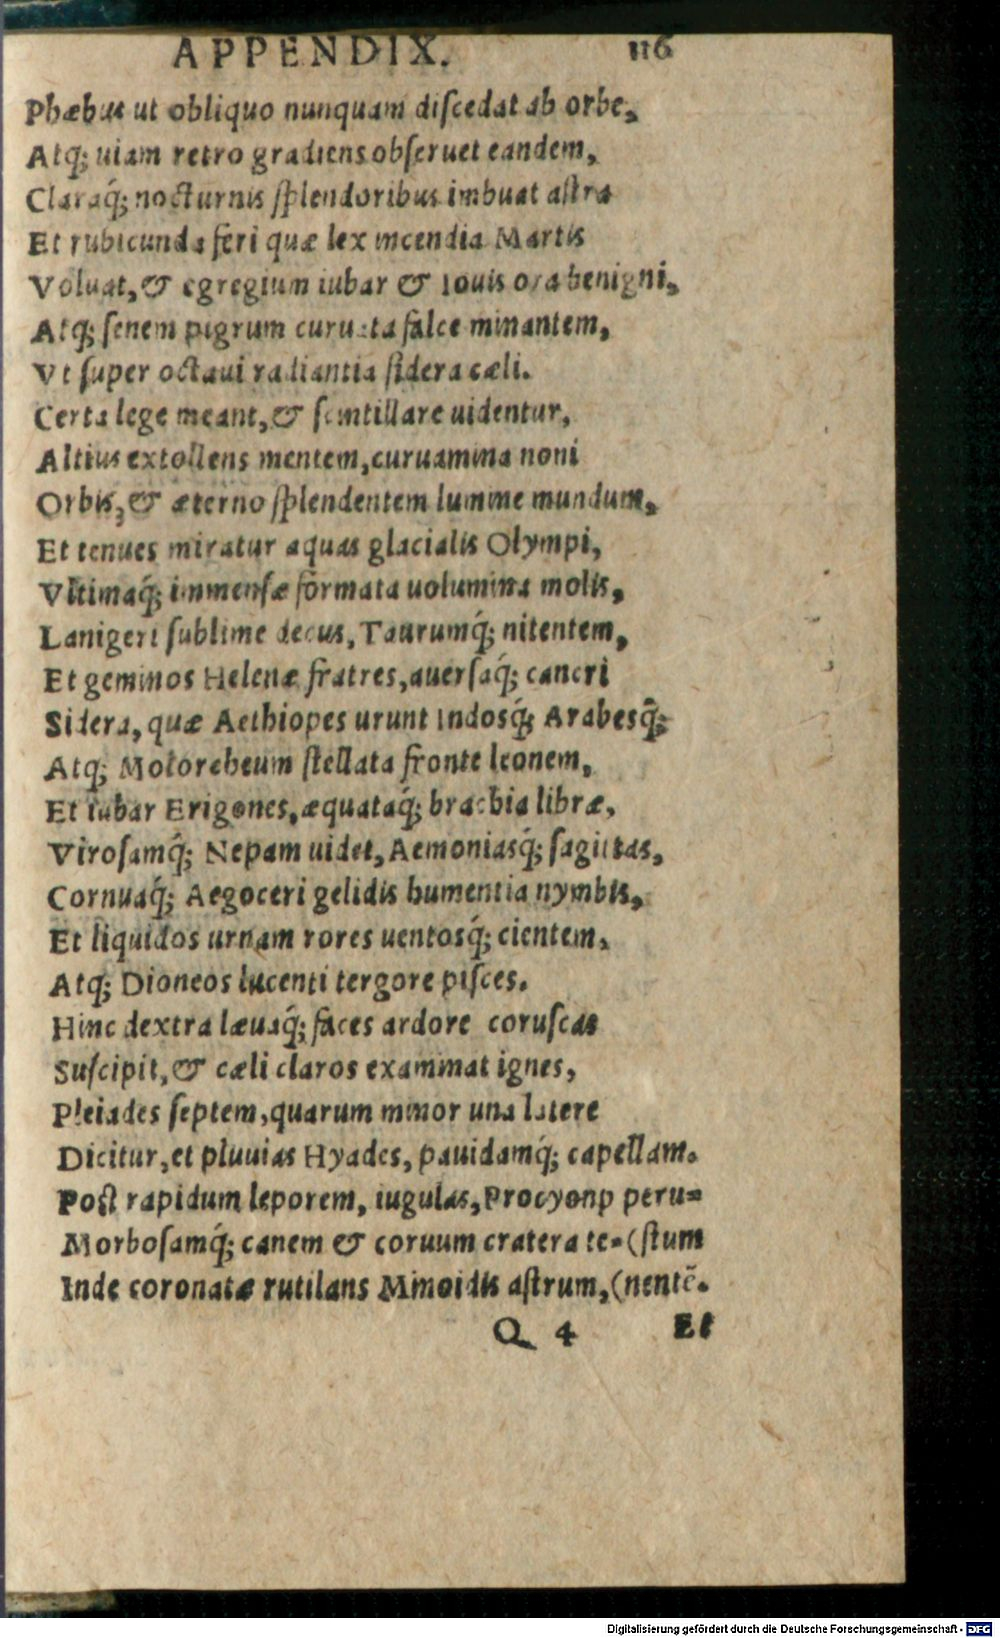 APPENDIX. 116
Phæbus ut obliquo nunquam discedat ab orbe,
Atq́; uiam retro gradiens obseruet eandem,
Claraq́; nocturnis splendoribus imbuat astra
Et rubicunda feri quæ lex incendia Martis
Voluat, & egregium iubar & Iouis ora benigni,
Atq́; senem pigrum curuata falce minantem,
Vt super octaui radiantia sidera cæli.
Certa lege meant, & scintillare uidentur,
Altius extollens mentem, curuamina noni
Orbis, & æterno splendentem lumine mundum,
Et tenues miratur aquas glacialis Olympi,
Vltimaq́; immensæ formata uolumina molis,
Lanigeri sublime decus, Taurumq́; nitentem,
Et geminos Helenæ fratres, auersaq́; cancri
Sidera, quæ Aethiopes urunt Indosq́; Arabesq́;
Atq; Molorcheum stellata fronte leonem,
Et iubar Erigones, æquataq́; brachia libræ,
Virosamq́; Nepam uidet, Aemoniasq́; sagittas,
Cornuaq́; Aegoceri gelidis humentia nymbis,
Et liquidos urnam rores uentosq́; cientem,
Atq; Dioneos lucenti tergore pisces.
Hinc dextra læuaq́; faces ardore coruscas
Suscipit, & cæli claros examinat ignes,
Pleiades septem, quarum minor una latere
Dicitur, et pluuias Hyades, pauidamq́; capellam.
Post rapidum leporem, iugulas, Procyonp peru=
Morbosamq́; canem & coruum cratera te=(stum
Inde coronatæ rutilans Minoidis astrum, (nentē.
Q 4 Et
Digitalisierung gefördert durch die Deutsche Forschungsgemeinschaft - DFG